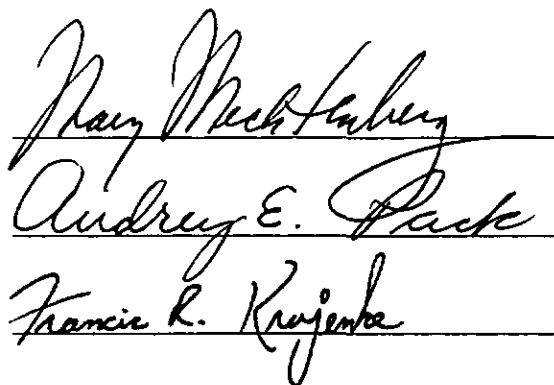 Mary Mechtenberg
Audrey E. Pack
Francis R. Krajenke